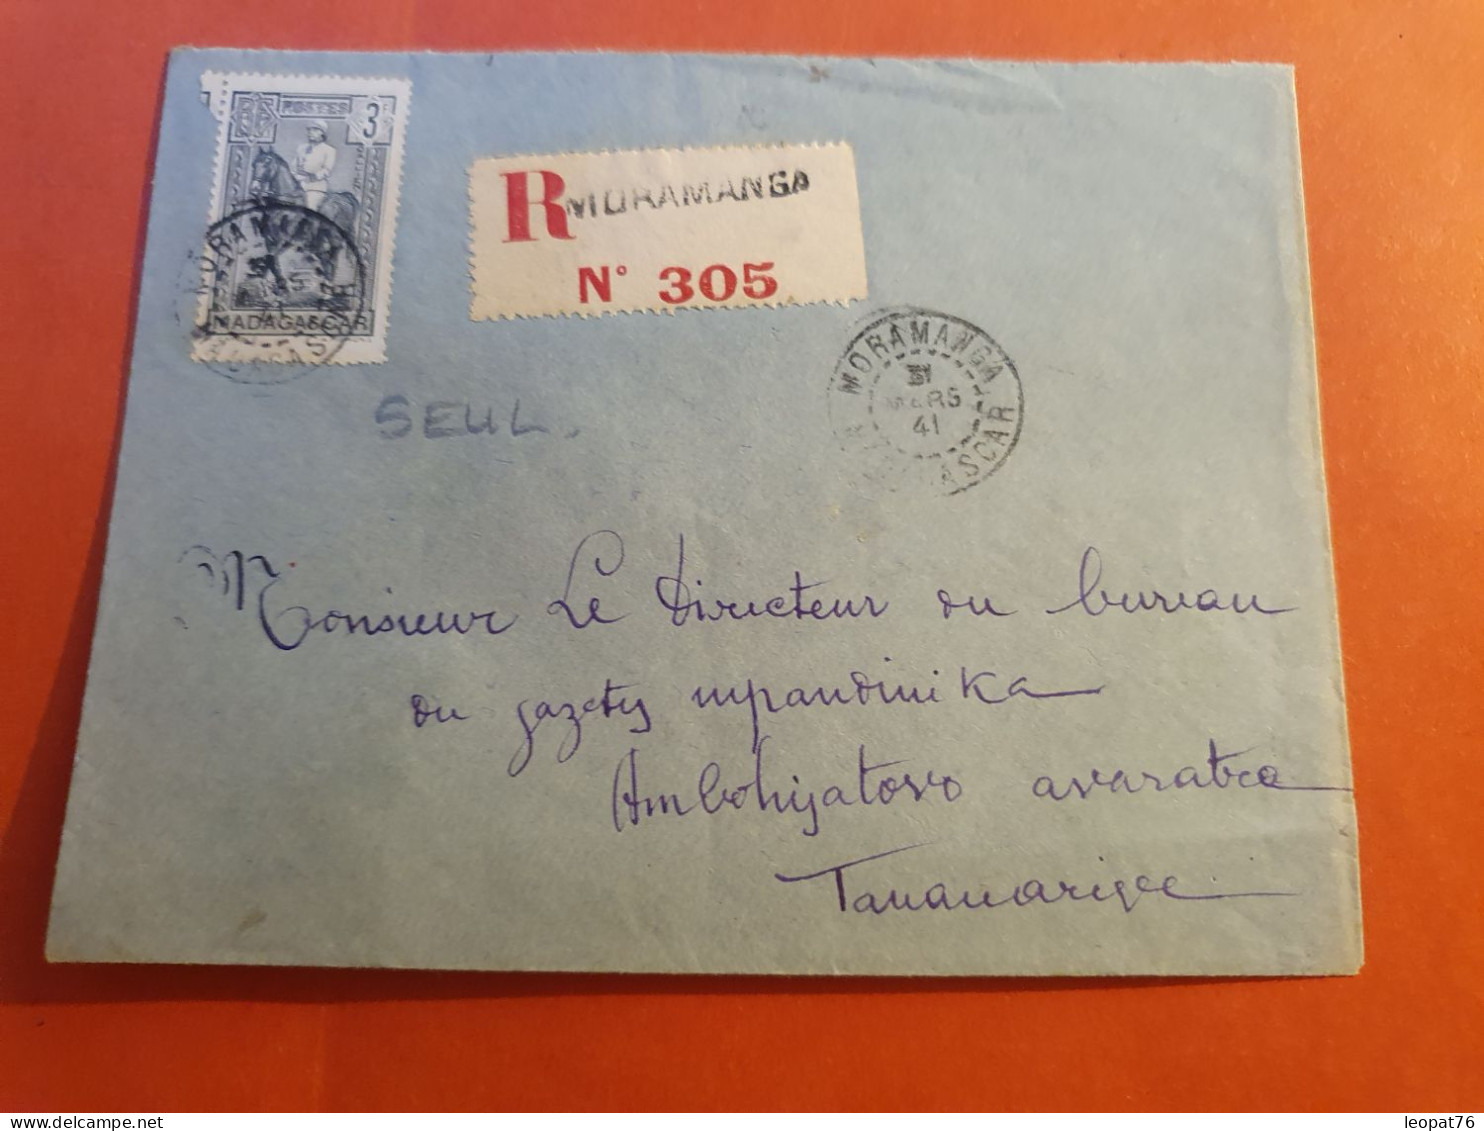 RF POSTES 3F
MADAGASCAR
MORAMANGA
MADAGASCAR
R MORAMANGA
N° 305
MORAMANGA
31
MARS
41
MADAGASCAR
SEUL.
Monsieur Le Directeur du bureau
du gazety mpandinika
Ambohijatovo avaratra
Tananarive
leopat76